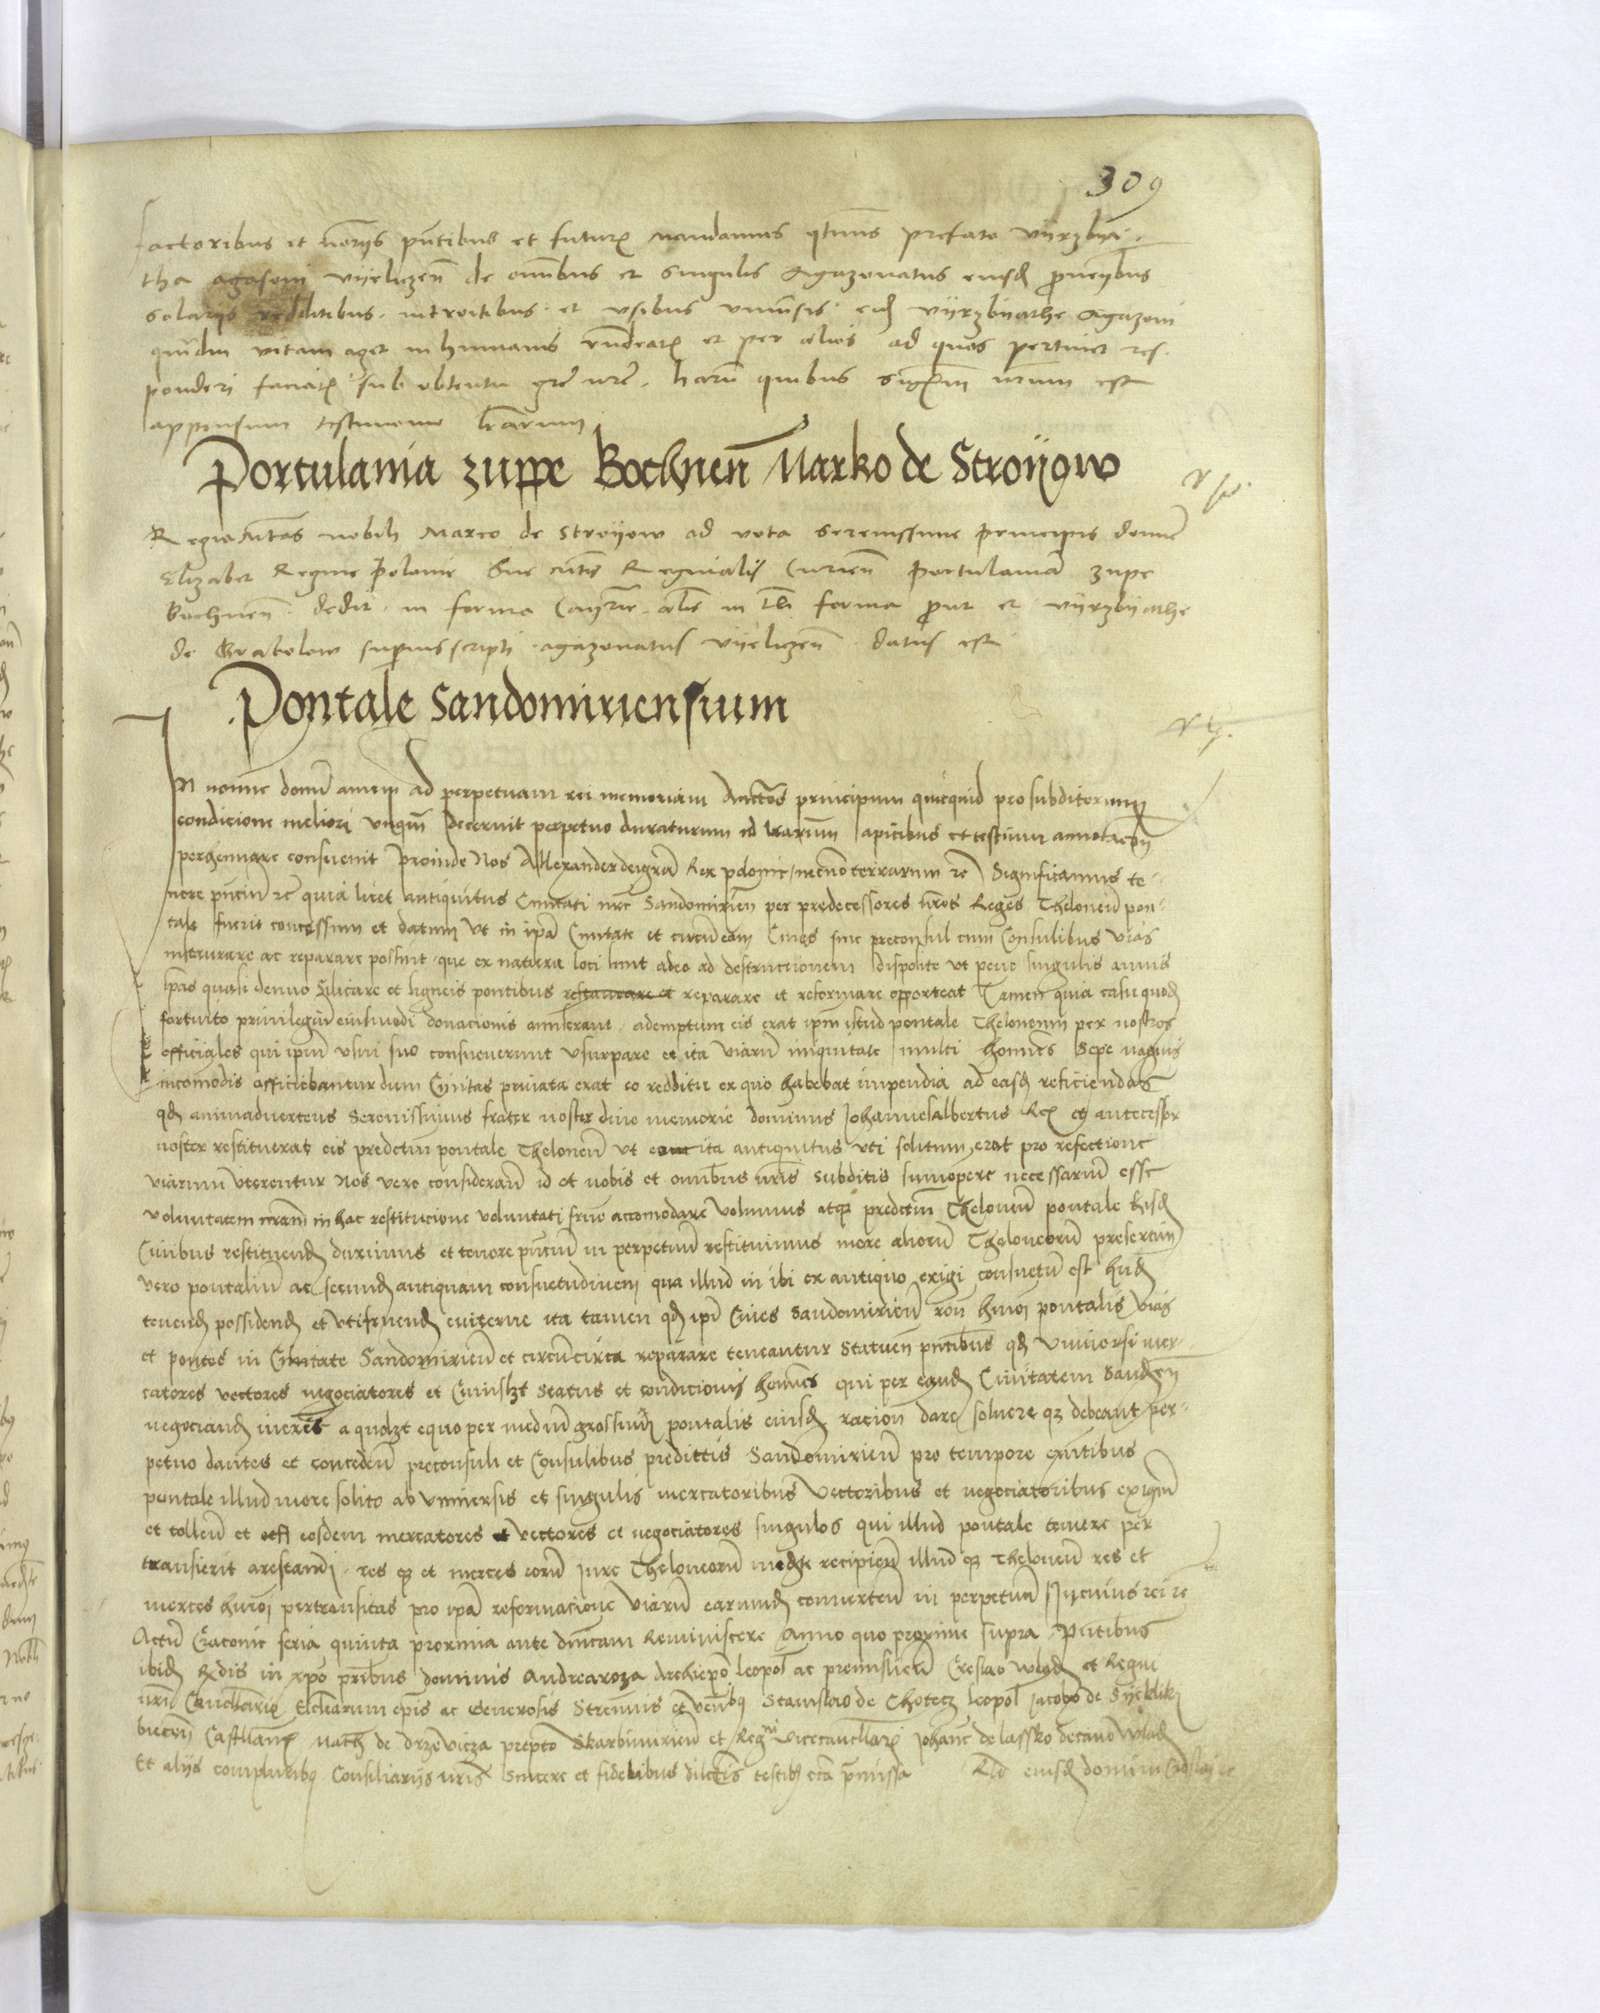 309
factoribus et notarijs pntibus et futur mandamus qtnus prefato Vijrzbija
tha agasoni Vijeliczen de omnibus et singulis Agazonatus eiusd proventibus
salarijs redditibus introitibus et vsibus vniuersis eid Vijrzbijathe Agazoni
quamdiu vitam aget in humanis rndeatis et per alios ad quos pertinet res
ponderi faciatis sub obtentu gre nre harum quibus sigillum nrum est
appensum testimonio lrarum
Portulania zuppe Bochnen Marko de Stroijow
Regia Mtas nobili Marco de Stroijow ad vota serenissime principis domine
Elizabet Regine Polonie Sue mtis Reginalis Curien Portulaniam zupe
Bochnen dedit in forma alias in tali forma prout et Vijrzbijathe
de Grabolow superius scripti agazonatus Vijeliczen datus est
Pontale Sandomiriensium
In nomine domini amen ad perpetuam rei memoriam Auctoritas principum quicquid pro subditorum
condicione meliori vnqm decernit perpetuo duraturum id lrarum apicibus et testium annotacoe
perhennare consuevit Proinde Nos Allexander dei gra Rex polonie necno terrarum rc Significamus te
nore pntium rc quia licet antiquitus Ciuitati nre Sandomirien per predecessores nros Reges Theloneum pon
tale fuerit concessum et datum vt in ipa Ciuitate et circu eam Ciues sine preconsul cum Consulibus vias
instaurare ac reparare possint que ex natura loci sunt adeo ad destructionem disposite vt pene singulis annis
ipas quasi denuo silicare et ligneis pontibus restaurare et reparare et reformare opporteat Tamen quia casu quod
fortuito privilegium eiusmodi donacionis amiserant ademptum eis erat ipm istud pontale Theloneum per nostros
officiales qui ipm vsui suo consueuerunt vsurpare et ita viarum iniquitate multi homines sepe magnis
incomodis afficiebantur dum Civitas privata erat eo redditu ex quo habebat impendia ad easd reficiendas
qd animadvertens Serenissimus frater noster dive memorie dominus Johannes Albertus Rex et antecessor
noster restituerat eis predictum pontale Theloneum vt eo ita antiquitus vti solitum erat pro refectione
viarum vterentur Nos vero consideran id et nobis et omnibus nris subditis sumopere necessarium esse
voluntatem nram in hac restitucione voluntati frne accomodare volumus atq predictum Theloneum pontale eisd
Ciuibus restituend duximus et tenore pntium in perpetuum restituimus more aliorum Theloneorum presertim
vero pontalium ac secund antiquam consuetudinem qua illud in ibi ex antiquo exigi consuetum est hnd
tenend possidend et vtifruend eviterne ita tamen qd ipi Ciues Sandomirien ron hmoi pontalis vias
et pontes in Ciuitate Sandomirien et circucirca reparare teneantur Statuen pntibus qd vniuersi mer
catores vectores negociatores et Cuiuslzt status et condicionis homines qui per eand Ciuitatem Sanden
negociand inerint a quolzt equo per medium grossum pontalis eiusd racion dare soluere qz debeant per
petuo dantes et conceden preconsuli et Consulibus predictis Sandomirien pro tempore exntibus
pontale illud more solito ab vniuersis et singulis mercatoribus vectoribus et negociatoribus exigen
et tollen et eosdem mercatores et vectores et negociatores singulos qui illud pontale temere per
transierit arestandi res qz et merces eorum jure Theloneorum mediante recipien illud qz Theloneum res et
merces hmoi pertransitas pro ipa reformacione viarum earund converten in perpetuum Huiuius rei rc
Actum Cracouie feria quinta proxima ante dnicam Reminiscere Anno quo proxime supra Pntibus
ibid Rdis in xpo pribus dominis Andrea roza Archiepo leopol ac premislien Creslao Wlad et Regni
nri Cancellario Eccliarum epis ac Generosis Strenuis et venbq Stanislao de Chotecz leopol Jacobo de
biecen Castellan Math de Drzewicza preposito Skarbimirien et Regni vicecancellario Johanne de lassko decano Wlad
Et alijs compluribq Consiliarijs nris Sincere et fidelibus dilectis testibq circa premissa Rlo eiusd domini Creslai rc